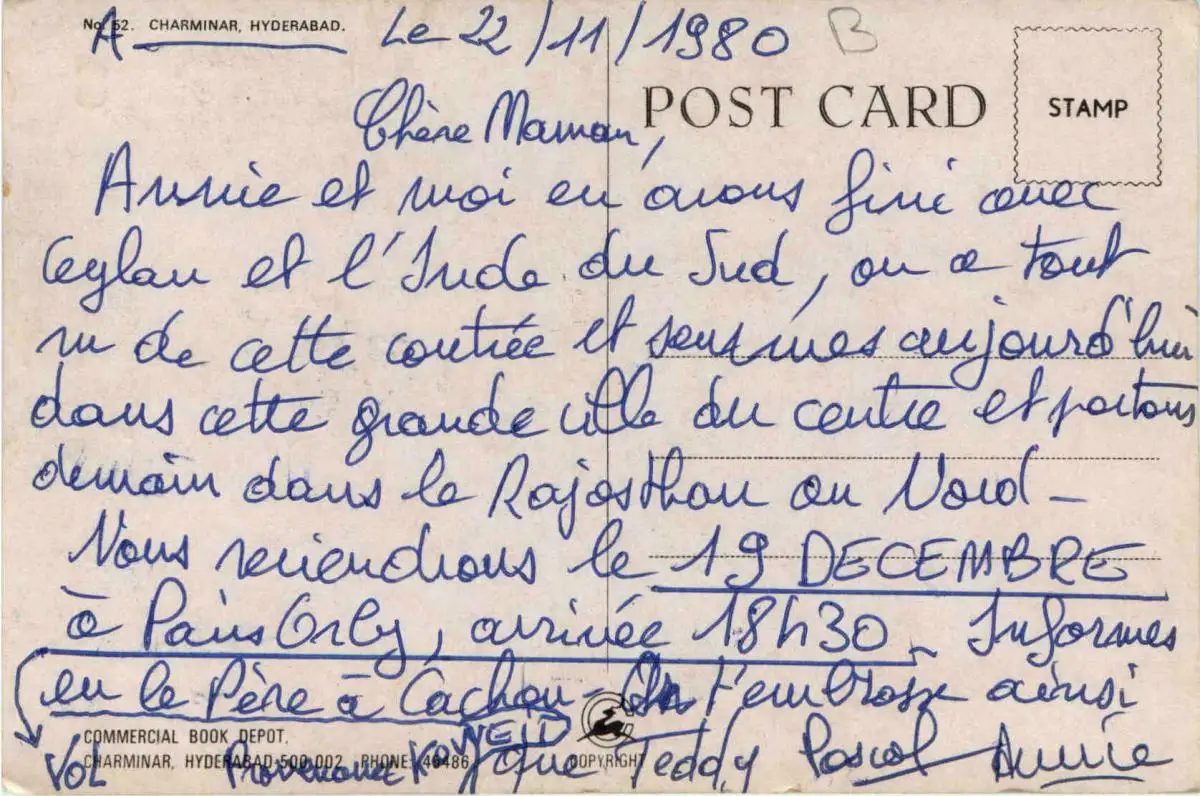 No. 52. CHARMINAR, HYDERABAD.
A Le 22/11/1980 B
POST CARD
STAMP
Chère Maman,
Annie et moi en avons fini avec
Ceylan et l'Inde du Sud, on a tout
vu de cette contrée et sommes aujourd'hui
dans cette grande ville du centre et partons
demain dans le Rajasthan au Nord -
Nous reviendrons le 19 DECEMBRE
à Paris Orly, arrivée 18h30 - Informes
en le Père à Cachan - On t'embrasse ainsi
que Teddy Pascal Annie
VOL Provenance KOWEID
COMMERCIAL BOOK DEPOT,
CHARMINAR, HYDERABAD-500 002 PHONE: 46486 COPYRIGHT